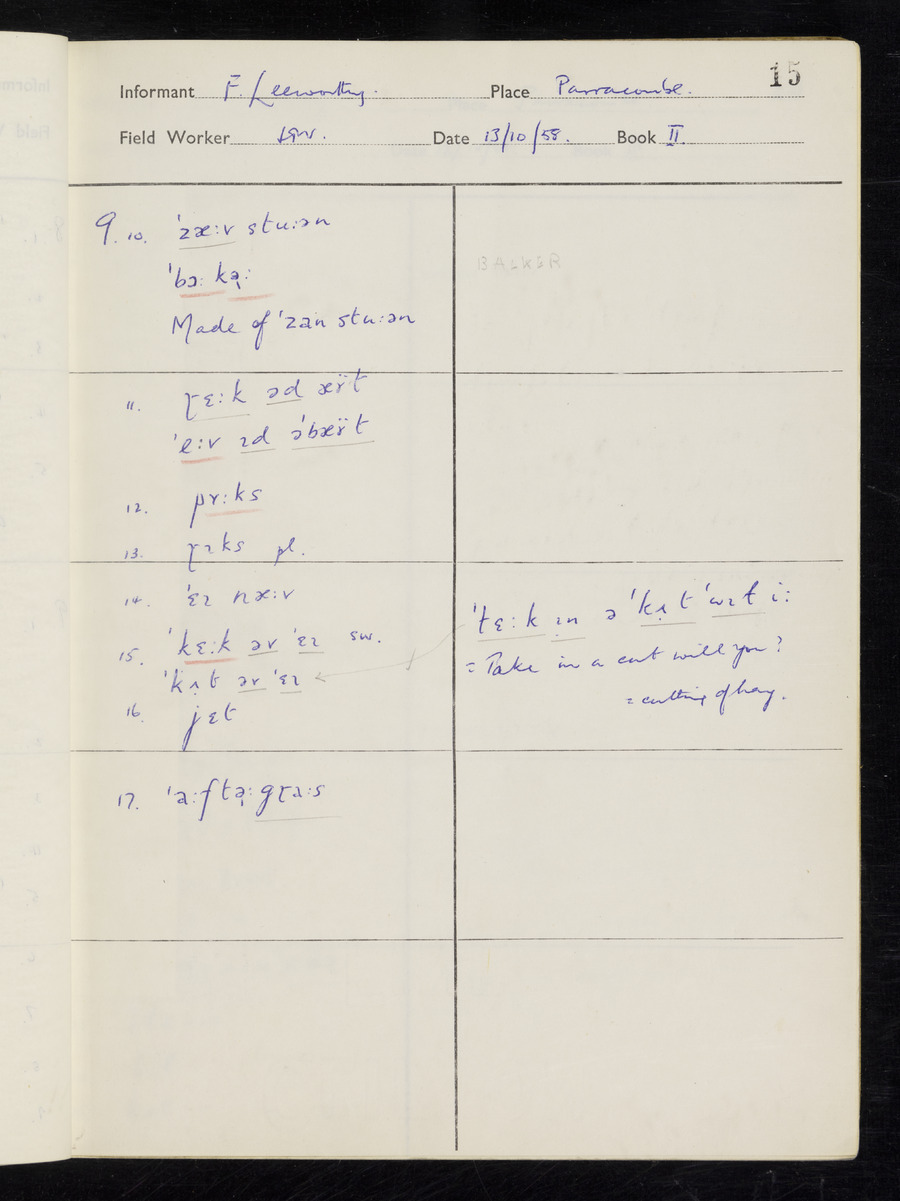 15
Informant F. Leeworthy. Place Parracombe.
Field Worker Date 13/10/58. Book II.
9. 10. ˈzæ:v stu:ən
ˈbɔ: kə̨:
BALKER
Made of ˈzan stu:ən
11. ɽɛ:k əd æɪ̈t
ˈe:v ɪd əˈbæɪ̈t
12. pɤ:ks
13. ɽɪks pl.
14. ˈɛɪ næ:v
15. ˈkɛ:k əv ˈɛɪ sw.
ˈkʌ̨t əv ˈɛɪ
16. jɛt
ˈtɛ:k ɪn ə ˈkʌ̨t ˈwɪt i:
= Take in a cut will you?
= cutting of hay.
17. ˈa:ftə̨:gɽa:s